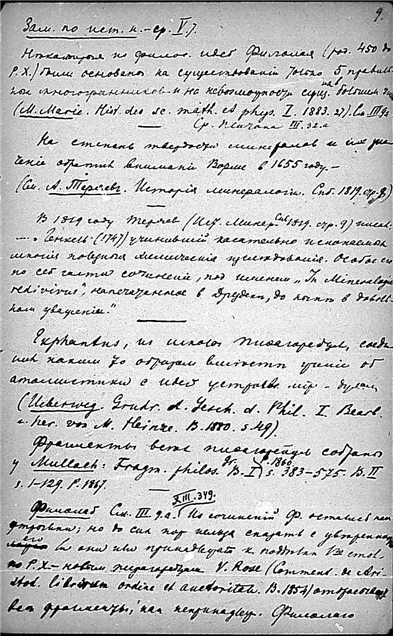 9.
Зам. по ист. н. – ср. V.7.
Некоторые из филос. идей Филолая (род. 450 до
Р.Х.) были основаны на существовании только 5 правиль
ных многогранников и на невозможности сущ. большего
(M. Marie. Hist. des sc. math. et phys. I. 1883. 27). См III 9
Ср. III.32.
На степень твердости минералов и их
обратил внимание Ворме в 1655 году. –
(См. А. Теряев. Исторія минералогіи. Спб. 1819. стр.)
В 1819 году Теряев (Ист. Минер. Спб 1819. стр. 9) писал
– „Генкель (1747) учинившій касательно ископаемых
многія поверхн. изследованія. Особое
по себ сочиненіе, под именем „In Mineralogia
redivivus", напечатанное в Дрездене, до ныне в доволь
ном уважении."
Ekphantus, из школы пиѳагорейцев, соеди
нил каким то образом вместе учение об
атомистики с идеей устройства мір
(Ueberweg. Grundr. d. Gesch. d. Phil. I. Bearb.
u. her. von M. Heinze. B. 1880. s 49).
Фрагменты всех пиѳагорейцев собраны
у Mullach: Fragm. philos. gr. B. I 1860 s. 383–575. B. II
s. 1–129. P. 1867.
XIII. 349.
Филолай См. III 9.а. Из сочинений Ф. остались нам
отрывки; но до сих пор нельзя сказать с уверенно
ли они или принадлежат к подделкам I
по Р.Х. – новым пиѳагорейцам V. Rose (Comment. de Ari
stot. librorum ordine et auctoritate. B. 1854)
все фрагменты, как непринадлеж. Филолаю